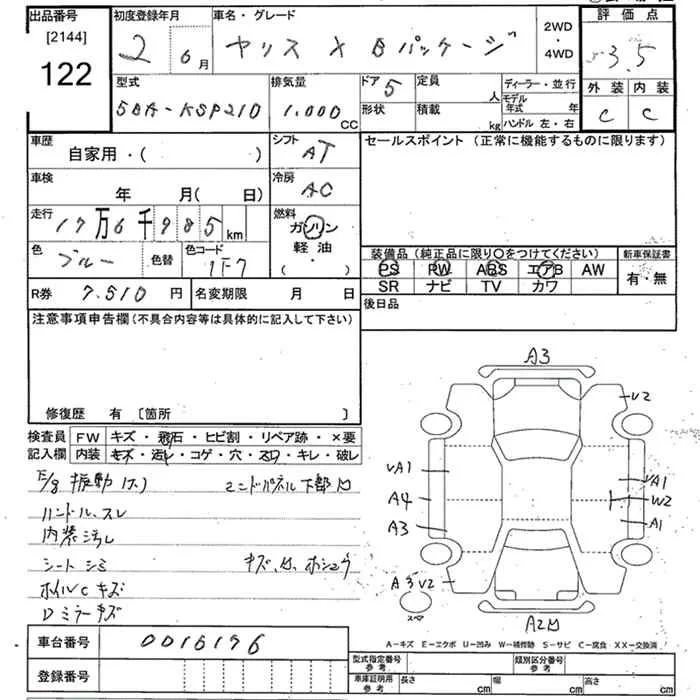 出品番号 初度登録年月 車名・グレード 2WD・4WD 評価点
[2144]
122
2 6月 ヤリス X Bパッケージ 3.5
型式 排気量 ドア 5 定員 人 ディーラー・並行 外装 内装
5BA-KSP210 1.000 CC 形状 積載 kg モデル年式 年 C C
ハンドル 左・右
車歴 シフト セールスポイント (正常に機能するものに限ります)
自家用・( ) AT
車検 年 月(日) 冷房 AC
走行 17万6千985km 燃料 ガソリン
軽油
・( )
色 ブルー 色替 色コード 1F7
装備品 (純正品に限り〇をつけてください) 新車保証書
PS PW ABS エアB AW 有・無
SR ナビ TV カワ
R券 7.510円 名変期限 月 日 後日品
注意事項申告欄 (不具合内容等は具体的に記入して下さい)
修復歴 有 [箇所 ]
検査員 FW キズ・飛石・ヒビ割・リペア跡・×要
記入欄 内装 キズ・汚レ・コゲ・穴・スレ・キレ・破レ
E/g 振動 エンドパネル下部凹
ハンドル、スレ
内装汚れ
シート シミ
ホイルC キズ
Dミラーキズ
A3
V2
VA1 VA1
A4 W2
A3 A1
A3 V2
スペア
A2凹
A－キズ E－エクボ U－凹み W－補修跡 S－サビ C－腐食 XX－交換済
車台番号 0016196
型式指定番号 参考 類別区分番号 参考
登録番号 車庫証明用 参考 長さ cm 幅 cm 高さ cm